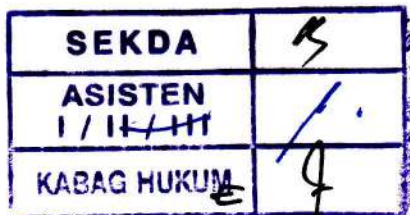 SEKDA
ASISTEN
I / II / III
KABAG HUKUM